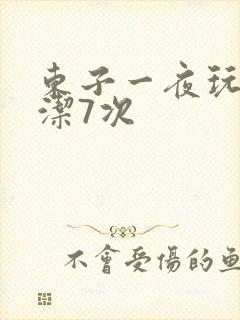 東子一夜玩
潔7次
不會受傷的魚